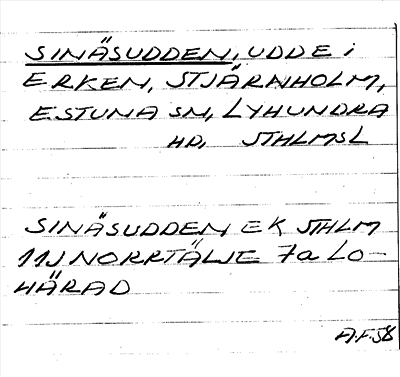 SINÄSUDDEN, UDDE i
ERKEN, STJÄRNHOLM,
ESTUNA SN, LYHUNDRA
HD, STHLMSL
SINÄSUDDEN EK STHLM
11J NORRTÄLJE 7a LO-
HÄRAD
A.F.58